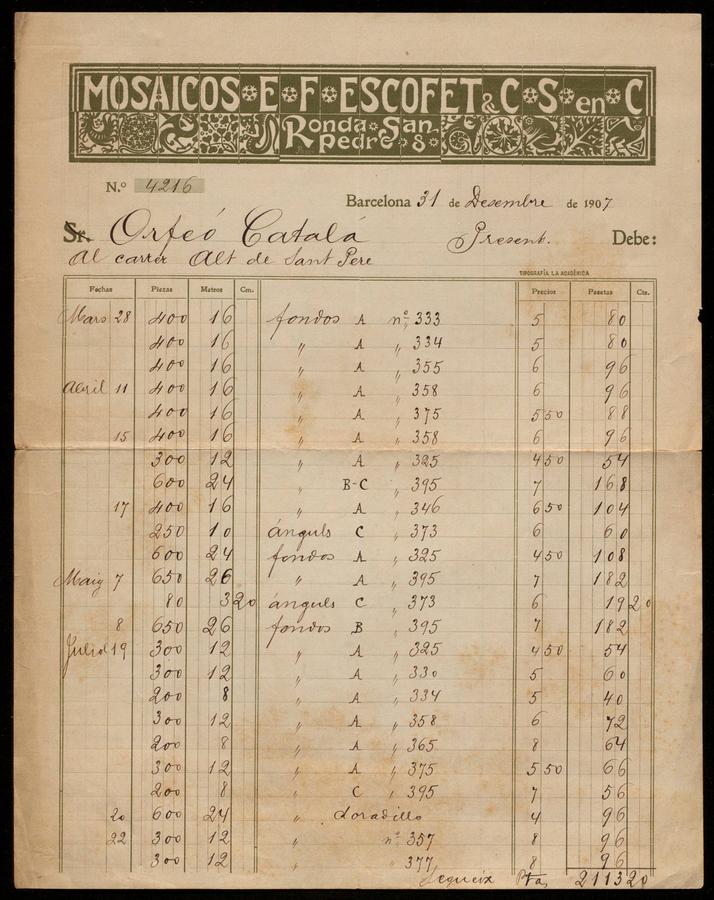 MOSAICOS E F ESCOFET & C S en C
Ronda San Pedro 8
N.º 4216
Barcelona 31 de Desembre de 1907
Sr. Orfeó Catalá Present. Debe:
Al carrer Alt de Sant Pere
TIPOGRAFÍA LA ACADÉMICA
Fechas Piezas Metros Cm. Precios Pesetas Cts.
Mars 28 400 16 fondos A nº 333 5 80
400 16 " A " 334 5 80
400 16 " A " 355 6 96
Abril 11 400 16 " A " 358 6 96
400 16 " A " 375 5 50 88
15 400 16 " A " 358 6 96
300 12 " A " 325 4 50 54
600 24 " B-C " 395 7 168
17 400 16 " A " 346 6 50 104
250 10 ánguls C " 373 6 60
600 24 fondos A " 325 4 50 108
Maig 7 650 26 " A " 395 7 182
80 3 20 ánguls C " 373 6 19 20
8 650 26 fondos B " 395 7 182
Juliol 19 300 12 " A " 325 4 50 54
300 12 " A " 330 5 60
200 8 " A " 334 5 40
300 12 " A " 358 6 72
200 8 " A " 365 8 64
300 12 " A " 375 5 50 66
200 8 " C " 395 7 56
20 600 24 " doradillo 4 96
22 300 12 " nº 357 8 96
300 12 " " 377 8 96
Segueix Ptas 2113 20